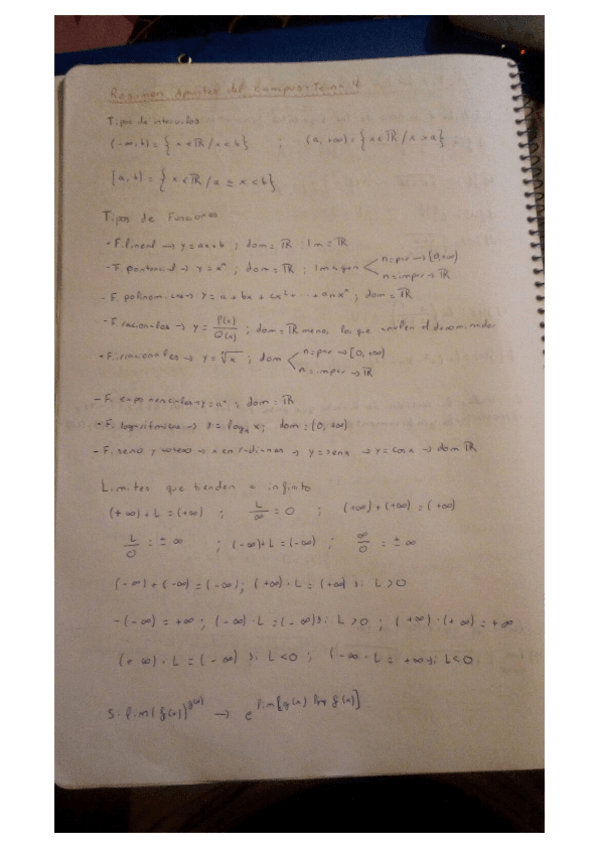 Resumen Apuntes del campus-Tema 4
Tipo de intervalos
(-∞, b) = { x ∈ ℝ / x < b } ; (a, +∞) = { x ∈ ℝ / x > a } ;
[a, b) = { x ∈ ℝ / a ≤ x < b }
Tipos de Funciones
- F. lineal → y = ax+b ; dom = ℝ ; Im = ℝ
- F. potencial → y = xⁿ ; dom = ℝ ; Imagen < n=par → [0, +∞)
n=impar → ℝ
- F. polinomica → y = a + bx + cx² + ... + anxⁿ ; dom = ℝ
- F. racionales → y = P(x)/Q(x) ; dom = ℝ menos los que anulen el denominador
- F. irracionales → y = ⁿ√x ; dom < n=par → [0, +∞)
n=impar → ℝ
- F. exponenciales → y = aˣ ; dom = ℝ
- F. logaritmicas → y = logₐ x ; dom = (0, +∞)
- F. seno y coseno → x en radianes → y = senx → y = cosx → dom ℝ
Limites que tienden a infinito
(+∞) + L = (+∞) ; L/∞ = 0 ; (+∞) + (+∞) = (+∞)
L/0 = ± ∞ ; (-∞) + L = (-∞) ; ∞/0 = ± ∞
(-∞) + (-∞) = (-∞) ; (+∞) · L = (+∞) si L > 0
-(-∞) = +∞ ; (-∞) · L = (-∞) si L > 0 ; (+∞) · (+∞) = +∞
(+∞) · L = (-∞) si L < 0 ; (-∞ · L = +∞ si L < 0
Si lim (f(x))^g(x) → e^lim[g(x) log f(x)]